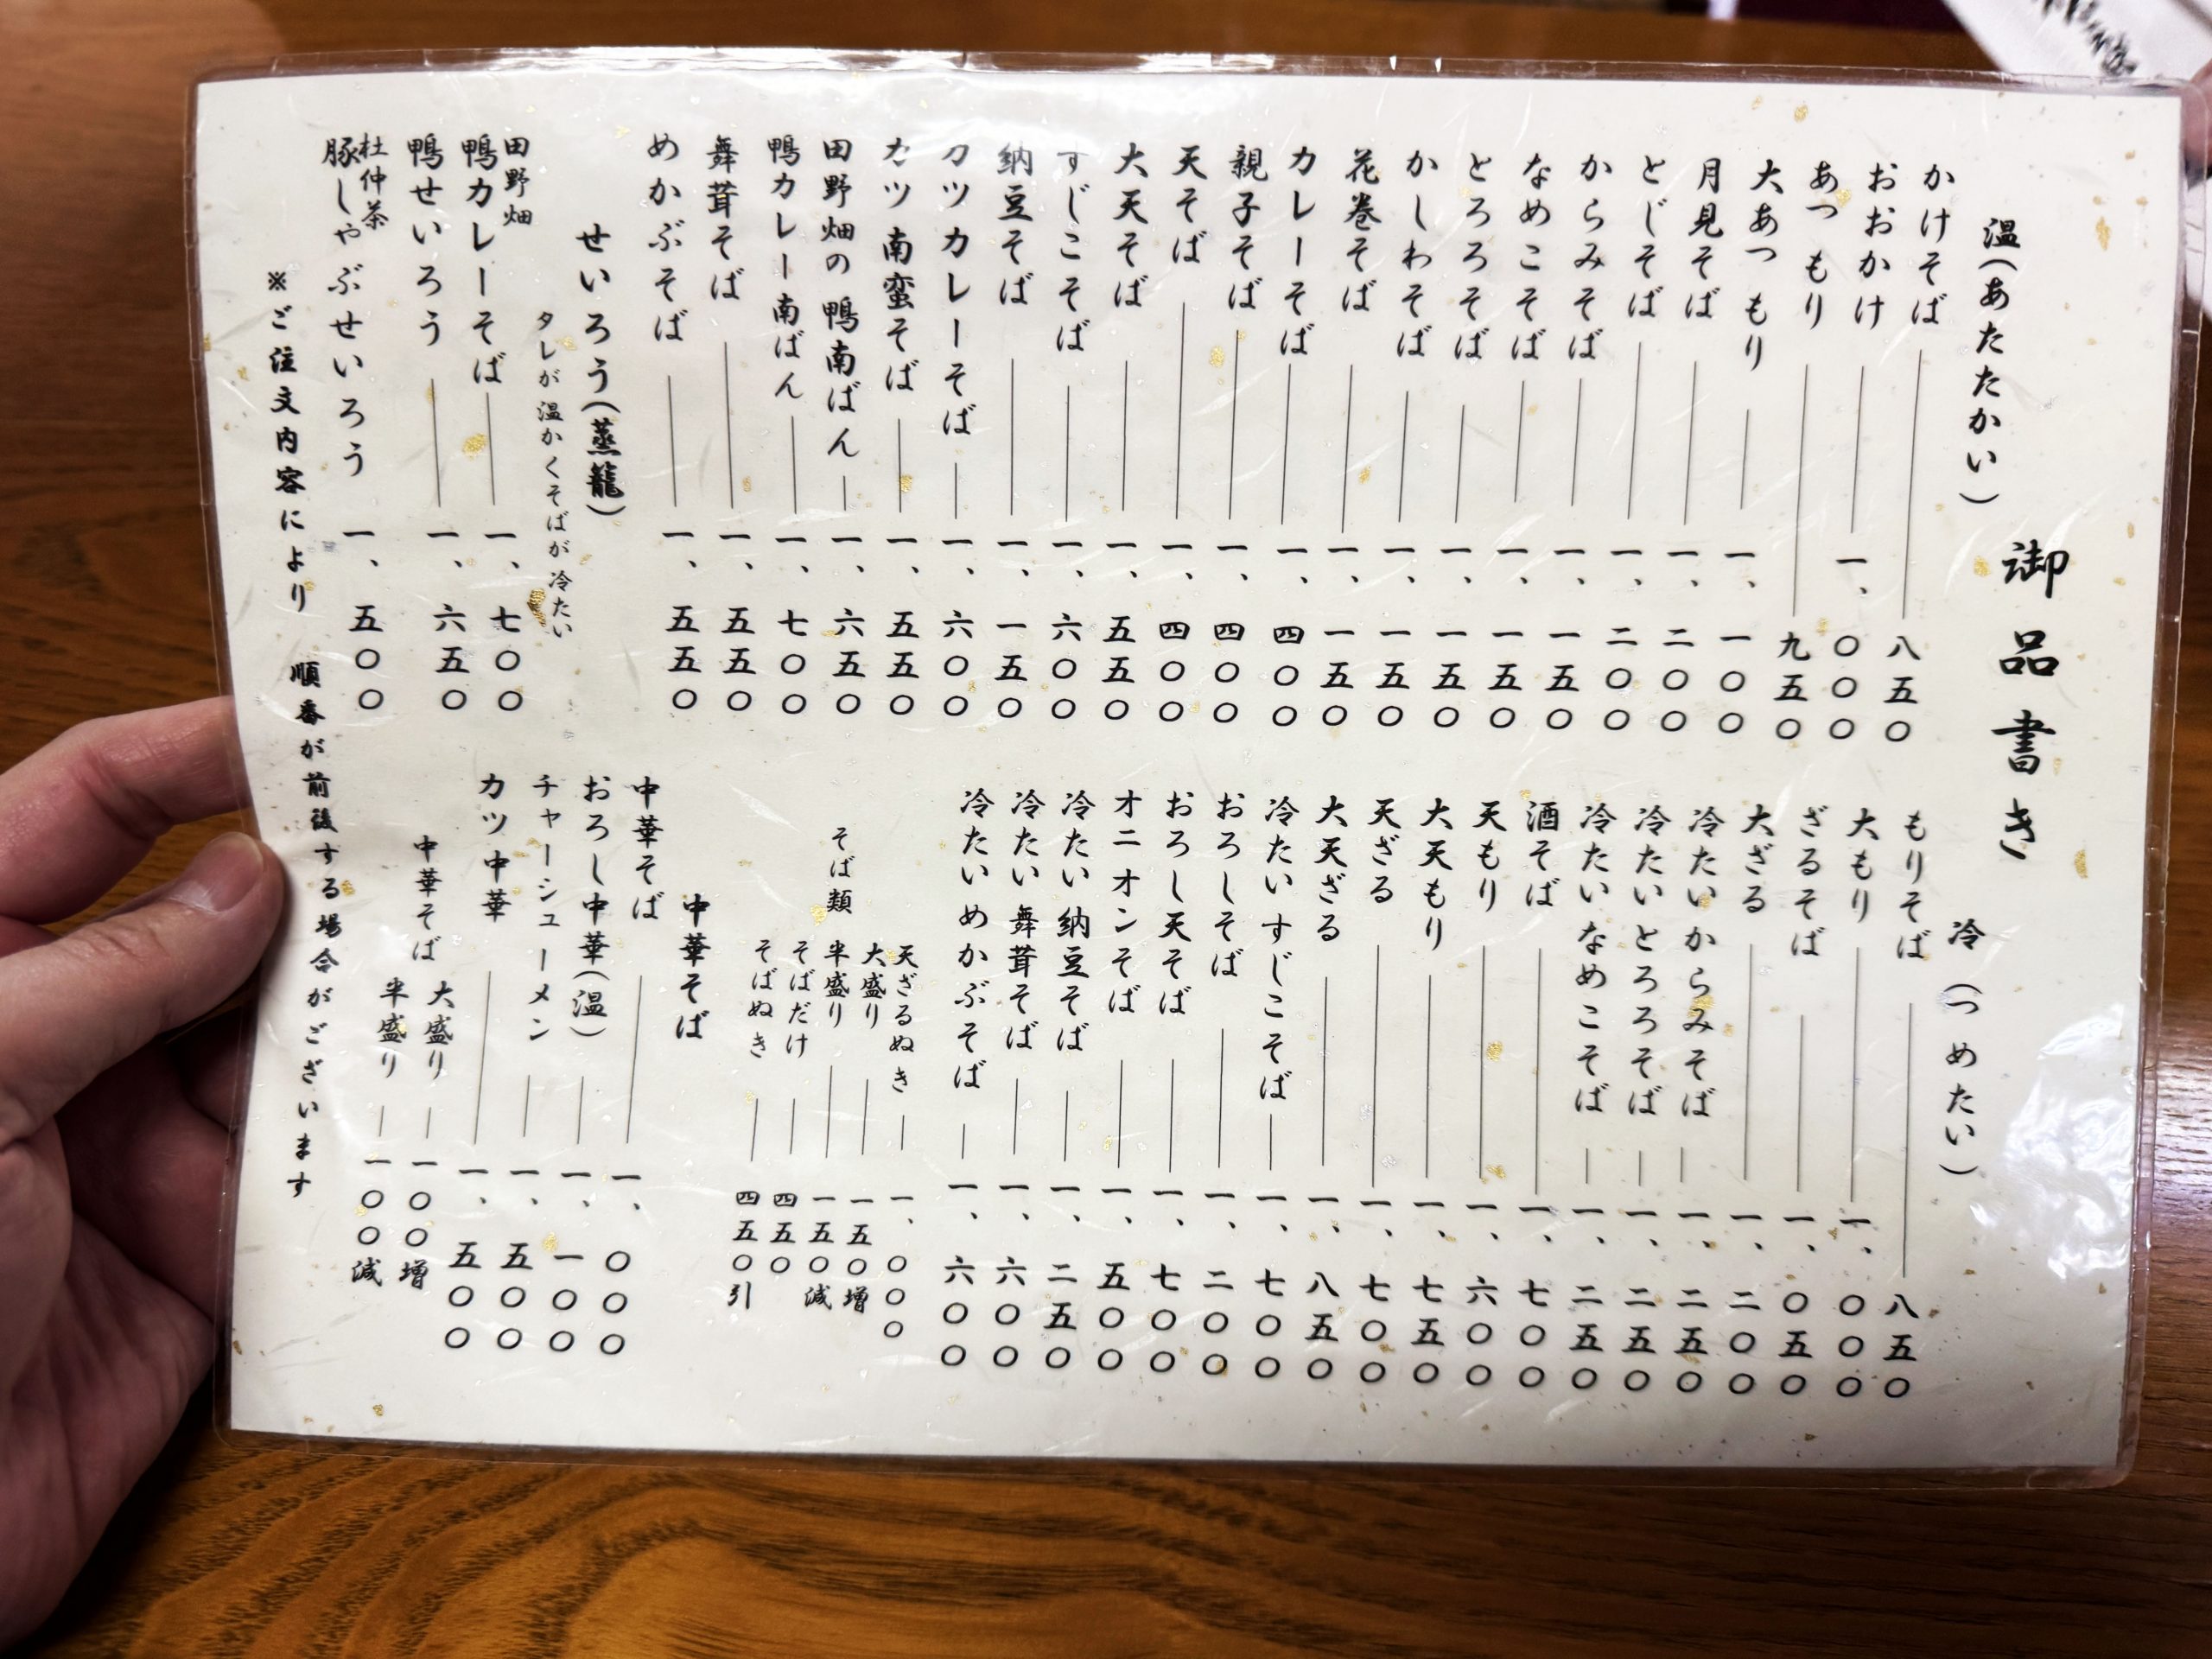 御品書き
温(あたたかい)
かけそば 八五〇
おおかけ 一、〇〇〇
あつもり 九五〇
大あつもり 一、一〇〇
月見そば 一、二〇〇
とじそば 一、二〇〇
からみそば 一、一五〇
なめこそば 一、一五〇
とろろそば 一、一五〇
かしわそば 一、一五〇
花巻そば 一、一五〇
カレーそば 一、四〇〇
親子そば 一、四〇〇
天そば 一、四〇〇
大天そば 一、五五〇
すじこそば 一、六〇〇
納豆そば 一、一五〇
カツカレーそば 一、六〇〇
カツ南蛮そば 一、五五〇
田野畑の鴨南ばん 一、六五〇
鴨カレー南ばん 一、七〇〇
舞茸そば 一、五五〇
めかぶそば 一、五五〇
せいろう(蒸籠)
タレが温かくそばが冷たい
田野畑
鴨カレーそば 一、七〇〇
鴨せいろう 一、六五〇
杜仲茶
豚しゃぶせいろう 一、五〇〇
冷(つめたい)
もりそば 八五〇
大もり 一、〇〇〇
ざるそば 一、〇五〇
大ざる 一、二〇〇
冷たいからみそば 一、二五〇
冷たいとろろそば 一、二五〇
冷たいなめこそば 一、二五〇
酒そば 一、七〇〇
天もり 一、六〇〇
大天もり 一、七五〇
天ざる 一、七〇〇
大天ざる 一、八五〇
冷たいすじこそば 一、七〇〇
おろしそば 一、二〇〇
おろし天そば 一、七〇〇
オニオンそば 一、五〇〇
冷たい納豆そば 一、二五〇
冷たい舞茸そば 一、六〇〇
冷たいめかぶそば 一、六〇〇
天ざるぬき 一、〇〇〇
そば類
大盛り 一五〇増
半盛り 一五〇減
そばだけ 四五〇
そばぬき 四五〇引
中華そば
中華そば 一、〇〇〇
おろし中華(温) 一、一〇〇
チャーシューメン 一、五〇〇
カツ中華 一、五〇〇
中華そば
大盛り 一〇〇増
半盛り 一〇〇減
※ご注文内容により 順番が前後する場合がございます